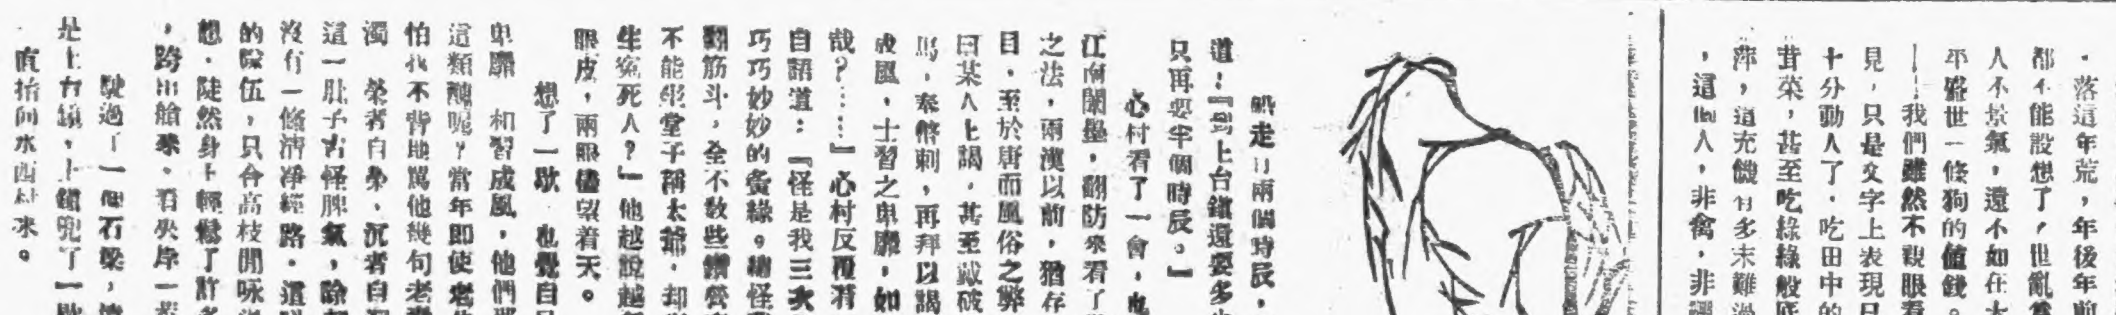 ・落這年荒，年後年前
都不能設想了，世亂當
人不景氣，還不如在太
平盛世一條狗的值錢。
——我們雖然不親眼看
見，只是文字上表現已
十分動人了。吃田中的
茸菜，甚至吃綠綠般底
萍，這充饑
，這個人，非禽，非
船走了兩個時辰，
道：『到上台鎮還要多少
只再要半個時辰。』
心村看了一會，
江南闈墨，翻防來看了
之法，兩漢以前，猶存
目，至於唐而風俗之弊
曰某人上謁，甚至戴破
馬，奉幣刺，再拜以謁
成風，士習之卑靡，如
哉？……』心村反覆看
自語道：『怪是我三次
巧巧妙妙的夤緣。
翻筋斗，全不敎些鑽營
不能坐堂子稱太爺，却
生寃死人？』他越說越
眼皮，兩眼儘望着天。
想了一歇　也覺自己
卑靡　和習成風，他們那
這類醜呢？當年即使老
怕我不背地罵他幾句老
濁　榮者自榮、沉者自沉
這一肚子古怪脾氣，除
沒有一條清淨經路。還
的隊伍，只合高枝閒咏
想．陡然身上輕鬆了許多
，跨出艙來。看夾岸一
駛過了一個石梁，
是上台鎮，上鎮兜了一
直抬向水西村來。